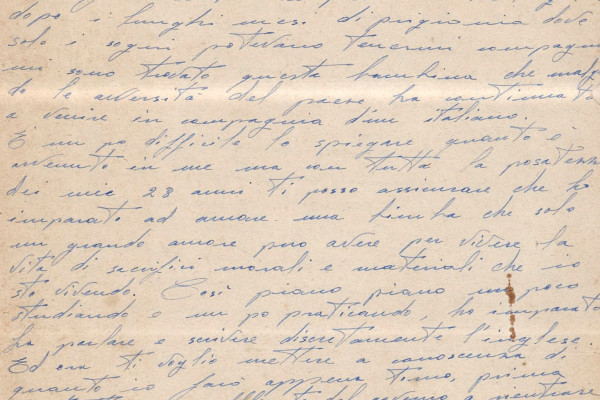 dopo i lunghi mesi di prigionia dove
solo i sogni potevano tenermi compagnia
mi sono trovato questa bambina che malgr
do le avversità del paese ha continuato
a venire in compagnia d'un italiano.
È un po difficile lo spiegare quanto è
avvenuto in me ma con tutta la posatezza
dei miei 28 anni ti posso assicurare che ho
imparato ad amare una bimba che solo
un grande amore può avere per vivere la
vita di sacrifici morali e materiali che io
sto vivendo. Così piano piano un poco
studiando e un po praticando, ho imparato
ha parlare e scrivere discretamente l'inglese.
Ed ora ti voglio mettere a conoscenza di
quanto io farò appena torno, prima
del governo a rientrare